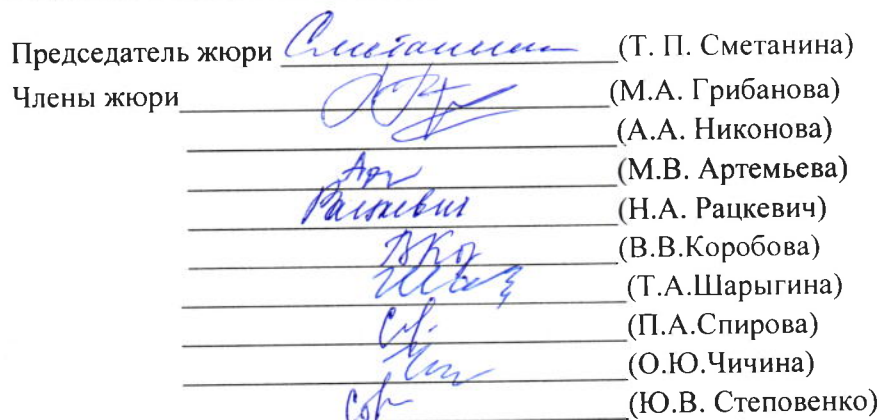 Председатель жюри Сметанина (Т. П. Сметанина)
Члены жюри (М.А. Грибанова)
(А.А. Никонова)
(М.В. Артемьева)
Рацкевич (Н.А. Рацкевич)
(В.В.Коробова)
(Т.А.Шарыгина)
(П.А.Спирова)
(О.Ю.Чичина)
(Ю.В. Степовенко)